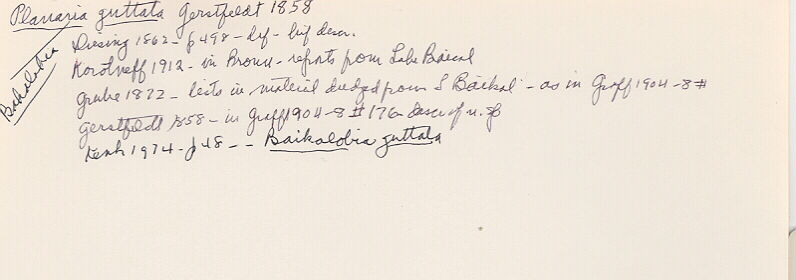 Planaria guttata Gerstfeldt 1858
Baikalobia
Diesing 1862 - p 498 - def - brief descr.
Korotneff 1912 - in Bronn - reports from Lake Baical
Grube 1872 - lists in material dredged from L Baikal - as in Graff 1904-8 #
Gerstfeldt 1858 - in Graff 1904-8 # 176 - descr of n. sp
Kenk 1974 - p 48 - - Baikalobia guttata